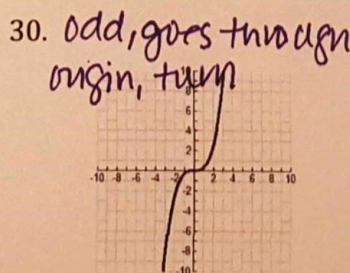 30. Odd, goes through
origin, turn
8
6
4
2
-10 -8 -6 -4 -2 2 4 6 8 10
-2
-4
-6
-8
-10